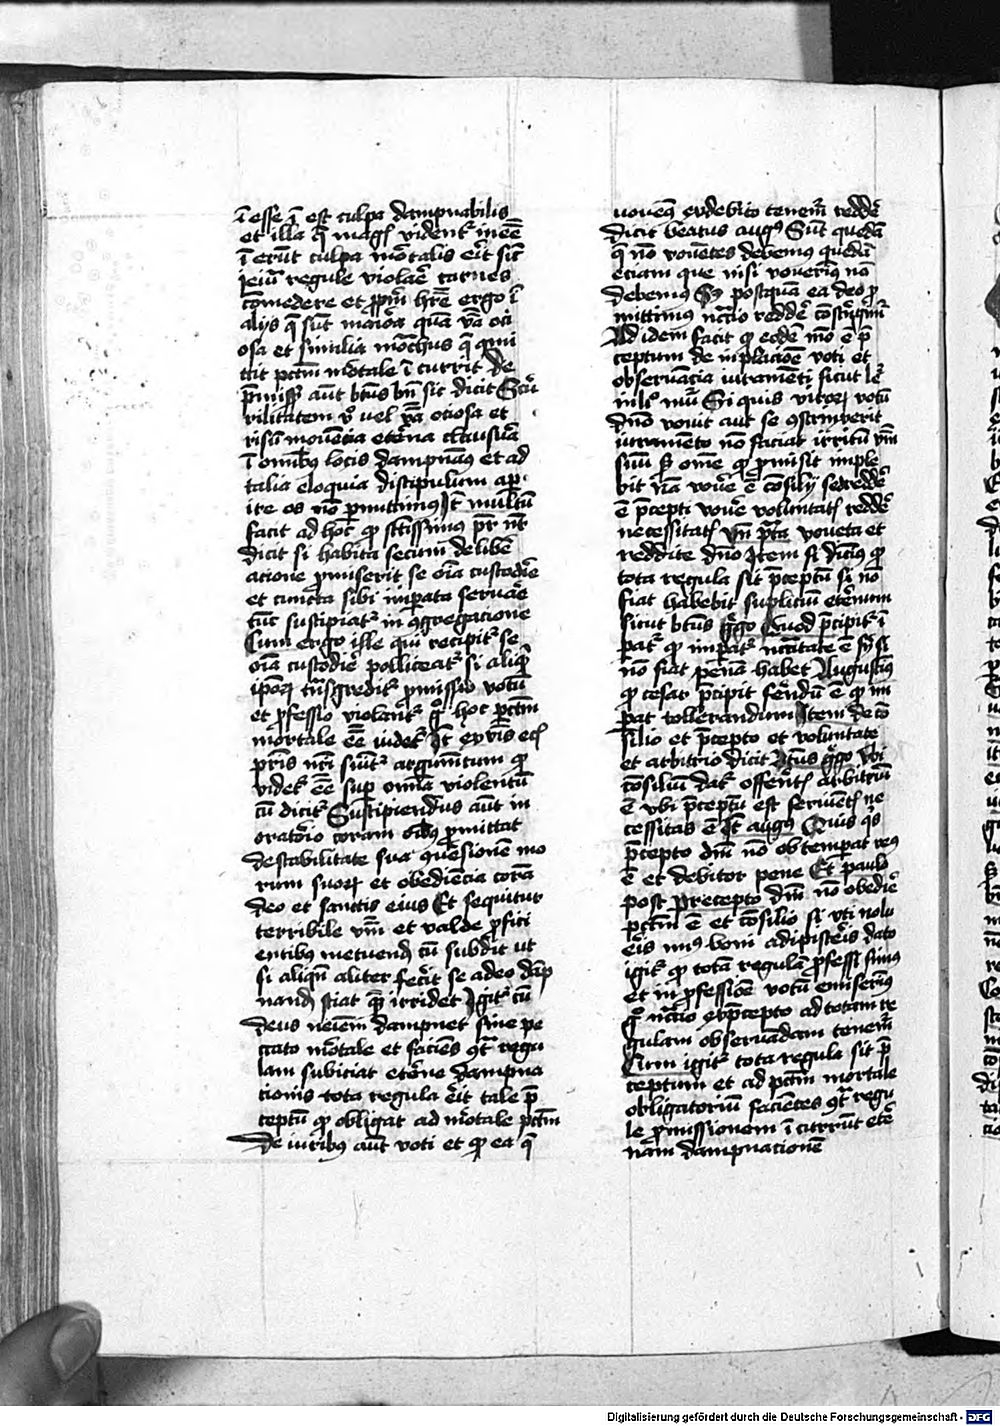 ī esse q̄ est culpa dampnabilis
et illa q̄ magꝭ vident᷑ in eē
ī erūt culpa mortalis erit sic̄
ieiuīū regule violare carnes
comedere et ꝓpriū habere ergo ī
alijs q̄ sūt maiora quā v̄ba oci
osa et similia monachus q̄ qui
ttit pctm mortale ī currit De
p̄missꝭ aūt btūs bn̄ sic dicit Scur
rilitatem vº uel v̄ba ociosa et
risū mouēcia eterna clausura
ī omībus locis dampnamus et ad
talia eloquia discipulum aper
ire os nō permittimus Itē multū
facit ad hoc qꝫ sctissimus pr̄ nr̄
dicit si habita secum delibe
ratione promiserit se oīa custodire
et cuncta sibi imperata seruare
tūc suscipiat᷑ in congregacione
Cum ergo ille qui recipit᷑ se
oīa custodire polliceat᷑ si aliqd
ipoꝝ trāsgredit᷑ promissio votū
et professio violant᷑ hoc pctm
mortale eē uidet᷑ Itē ex v̄bis eiꝰ
pr̄is nr̄i sumit᷑ argumentum qꝫ
videt᷑ eē sup omīa violentū
cū dicit᷑ Suscipiendus aūt in
oratorio coram omībus promittat
de stabilitate sua conuersione mo
rum suoꝝ et obediēcia corā
deo et sanctis eius Et sequitur
terribile v̄bū et valde profici
entibus metuendū cū subdit ut
si aliqn̄ aliter fecerit se a deo dāp
nandū sciat quē irridet Igit᷑ cū
deus neminē dampnet sine pe
ccato mortale et faciēs contra regu
lam subiciat eterne dampna
tionis tota regula erit tale p̄
ceptū qꝫ obligat ad mortale pctm
De iuribus aūt voti et qꝫ ea q̄
uoueas ex debito tenemur reddere
dicit beatus augꝰ Sunt quedā
q̄ nō vouētes debemus quedā
eciam que nisi vouerimus nō
debemus Sꝫ postquā ea deo pro
mittimus reddere
Ad idem facit qꝫ eodē mō ē p̄
ceptum de inplecione voti et
obseruācia iuramenti sicut le
Si quis viroꝝ votū
dn̄o vouit aut se constrinxerit
iuramento nō faciat irritū v̄bū
suū sꝫ omē qꝫ promisit imple
bit Nā vouere ē consilij sꝫ reddere
ē p̄cepti vouere voluntatꝭ reddere
necessitatꝭ vn̄ vouete et
reddite dn̄o Item si dicimus qꝫ
tota regula sit p̄ceptū si nō
fiat habebit supliciū eternum
sicut btūs grego Quod p̄cipit᷑ ī
perat᷑ qꝫ imperat᷑ necessitate ē si
nō fiat penā habet Augustinus
qꝫ cesar p̄cipit ferendū ē qꝫ im
perat tollerandum Item de cō
silio et p̄cepto et voluntate
et arbitrio dicit btūs grego Vbi
cōsiliū dat᷑ offerentꝭ arbitriū
ē vbi p̄ceptū est seruientꝭ ne
cessitas ē Itē augꝰ Quisquis
p̄cepto dn̄i nō obtemperat reus
ē et debitor pene Et paulo
post Precepto dn̄i nō obedire
pctm ē et cōsilio si vti nolu
eris minus boni adipisceris dato
igit᷑ qꝫ totā regulā professi simus
et in professiōe votū emiserimus
ex p̄cepto ad totam re
gulam obseruandam tenemur
Cum igit᷑ tota regula sit p̄
ceptum et ad pctm mortale
obligatoriū facientes contra regu
le promissionem ī currūt eter
nam dampnacionem
Digitalisierung gefördert durch die Deutsche Forschungsgemeinschaft - DFG